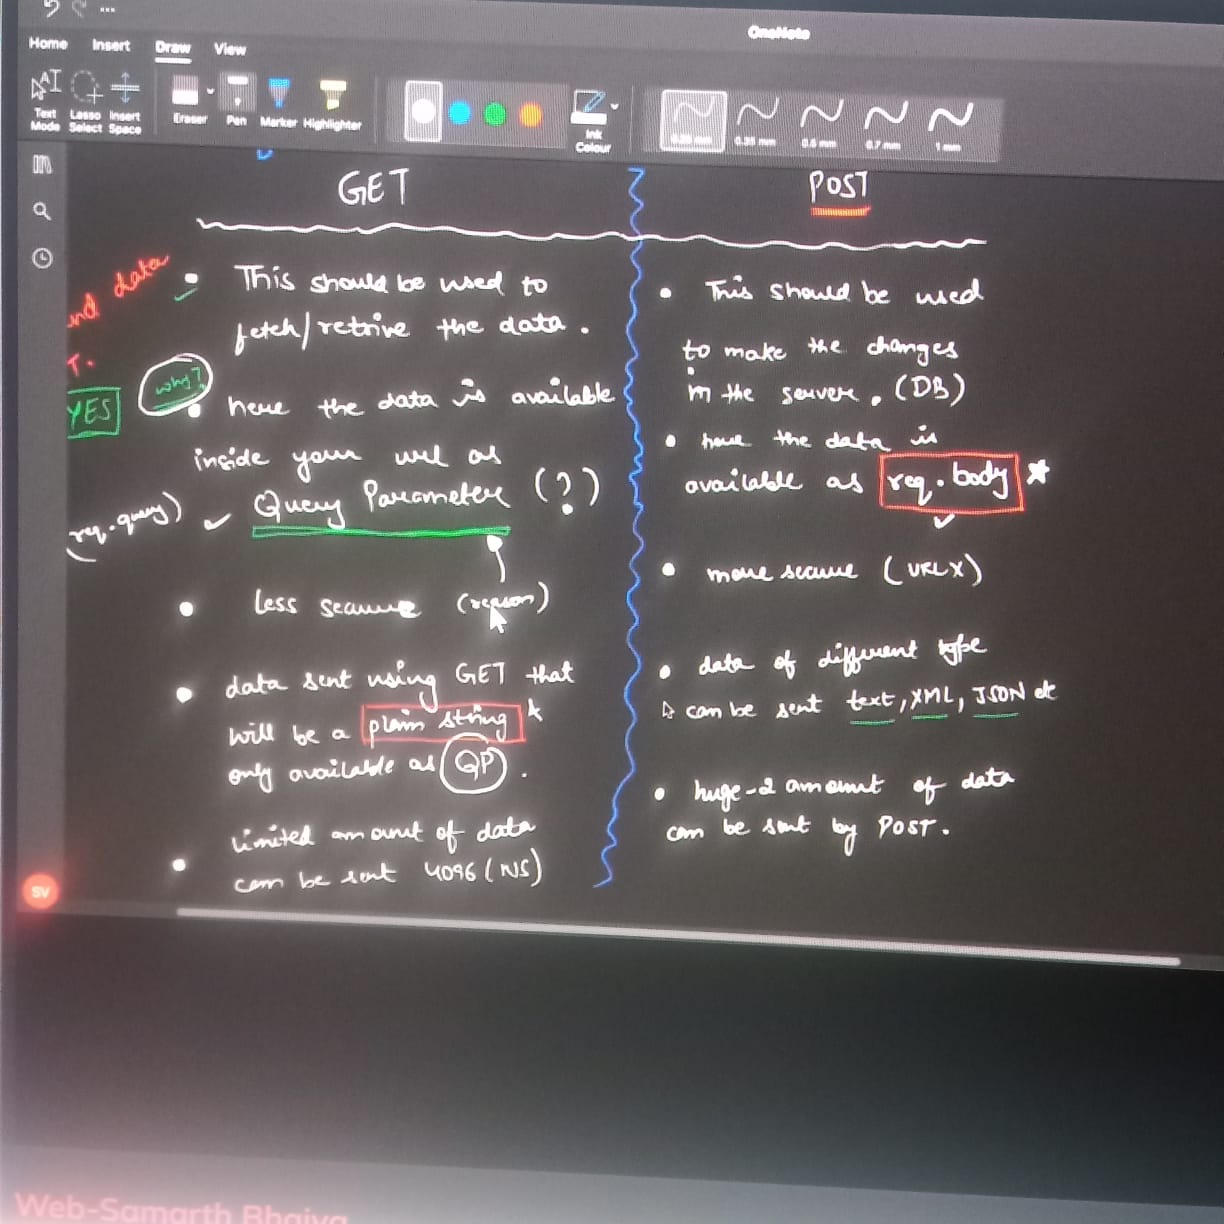 OneNote
Home Insert Draw View
Text Mode
Lasso Select
Insert Space
Eraser
Pen
Marker
Highlighter
Ink Colour
0.35 mm
0.5 mm
0.7 mm
1 mm
GET
• This should be used to
fetch/retrive the data.
why?
• here the data is available
inside your url as
(req.query) Query Parameters (?)
• Less secure (reason)
• data sent using GET that
will be a plain string
only available as QP.
• Limited amount of data
can be sent 4096 (NS)
data
T.
YES
POST
• This should be used
to make the changes
in the server. (DB)
• here the data is
available as req.body
• more secure (URLX)
• data of different type
can be sent text, XML, JSON etc
• huge-2 amount of data
can be sent by POST.
SV
Web-Samarth Bhaiya